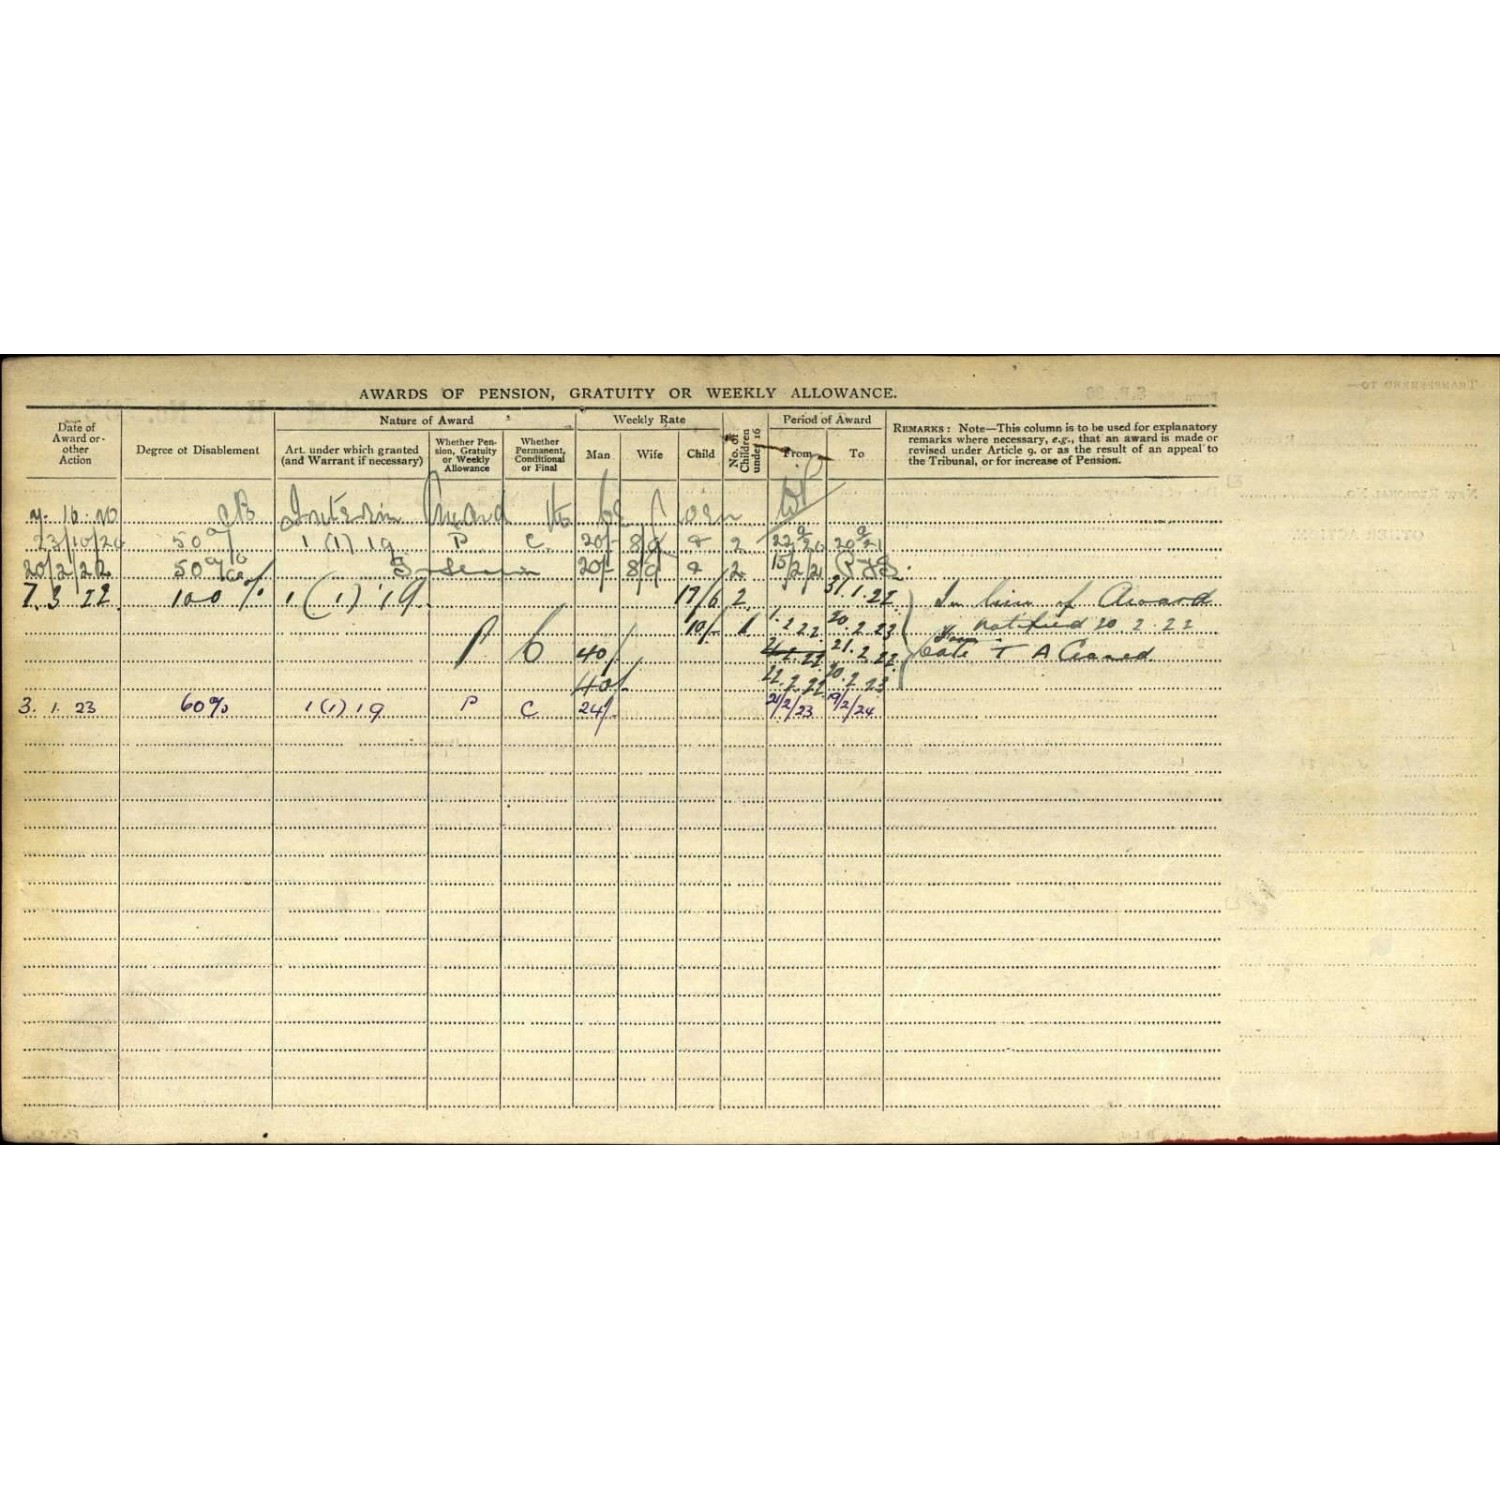 AWARDS OF PENSION, GRATUITY OR WEEKLY ALLOWANCE.
Date of Award or other Action
Degree of Disablement
Nature of Award
Art. under which granted (and Warrant if necessary)
Whether Pension, Gratuity or Weekly Allowance
Whether Permanent, Conditional or Final
Weekly Rate
Man Wife Child
No. of Children under 16
Period of Award
From To
REMARKS: Note—This column is to be used for explanatory
remarks where necessary, e.g., that an award is made or
revised under Article 9. or as the result of an appeal to
the Tribunal, or for increase of Pension.
Interim Award to be
23/10/20 50% 1 (1) 19 P C. 20/- 8/9 2 22 9/20 20 9/21
20/2/22 50% 20/- 8/9 2 15/2/2
7. 3 22 100% 1 (1) 19. 17/6 2 31.1.22 In lieu of Award
10/- 1 1.2.22 20.2.23 notified 20 2.22
P C 40/ 21.2.22 Cate T A Ceased
40/- 22.2.22 20.2.23
3. 1. 23 60% 1(1) 19 P C 24/- 21/2/23 19/2/24